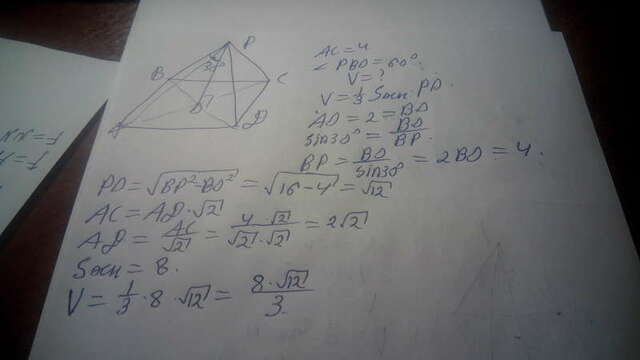 P
30°
B
C
O
A
D
AC=4
∠PBO=60°
V=?
V=1/3 Sосн·PO.
AO=2=BO
sin30°=BO/BP.
BP=BO/sin30°=2BO=4.
PO=√(BP²-BO²)=√(16-4)=√12
AC=AD·√2
AD=AC/√2=4·√2/(√2·√2)=2√2
Sосн=8.
V=1/3·8·√12=8·√12/3.